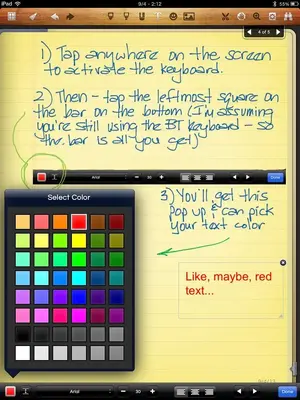 iPad
9/4 - 2:12
55%
4 of 5
1) Tap anywhere on the screen
to activate the keyboard.
2) Then - tap the leftmost square on
the bar on the bottom (I'm assuming
you're still using the BT keyboard - so
the bar is all you get)
Arial
30
Select Color
3) You'll get this
pop up & can pick
your text color
Like, maybe, red
text...
Arial
30